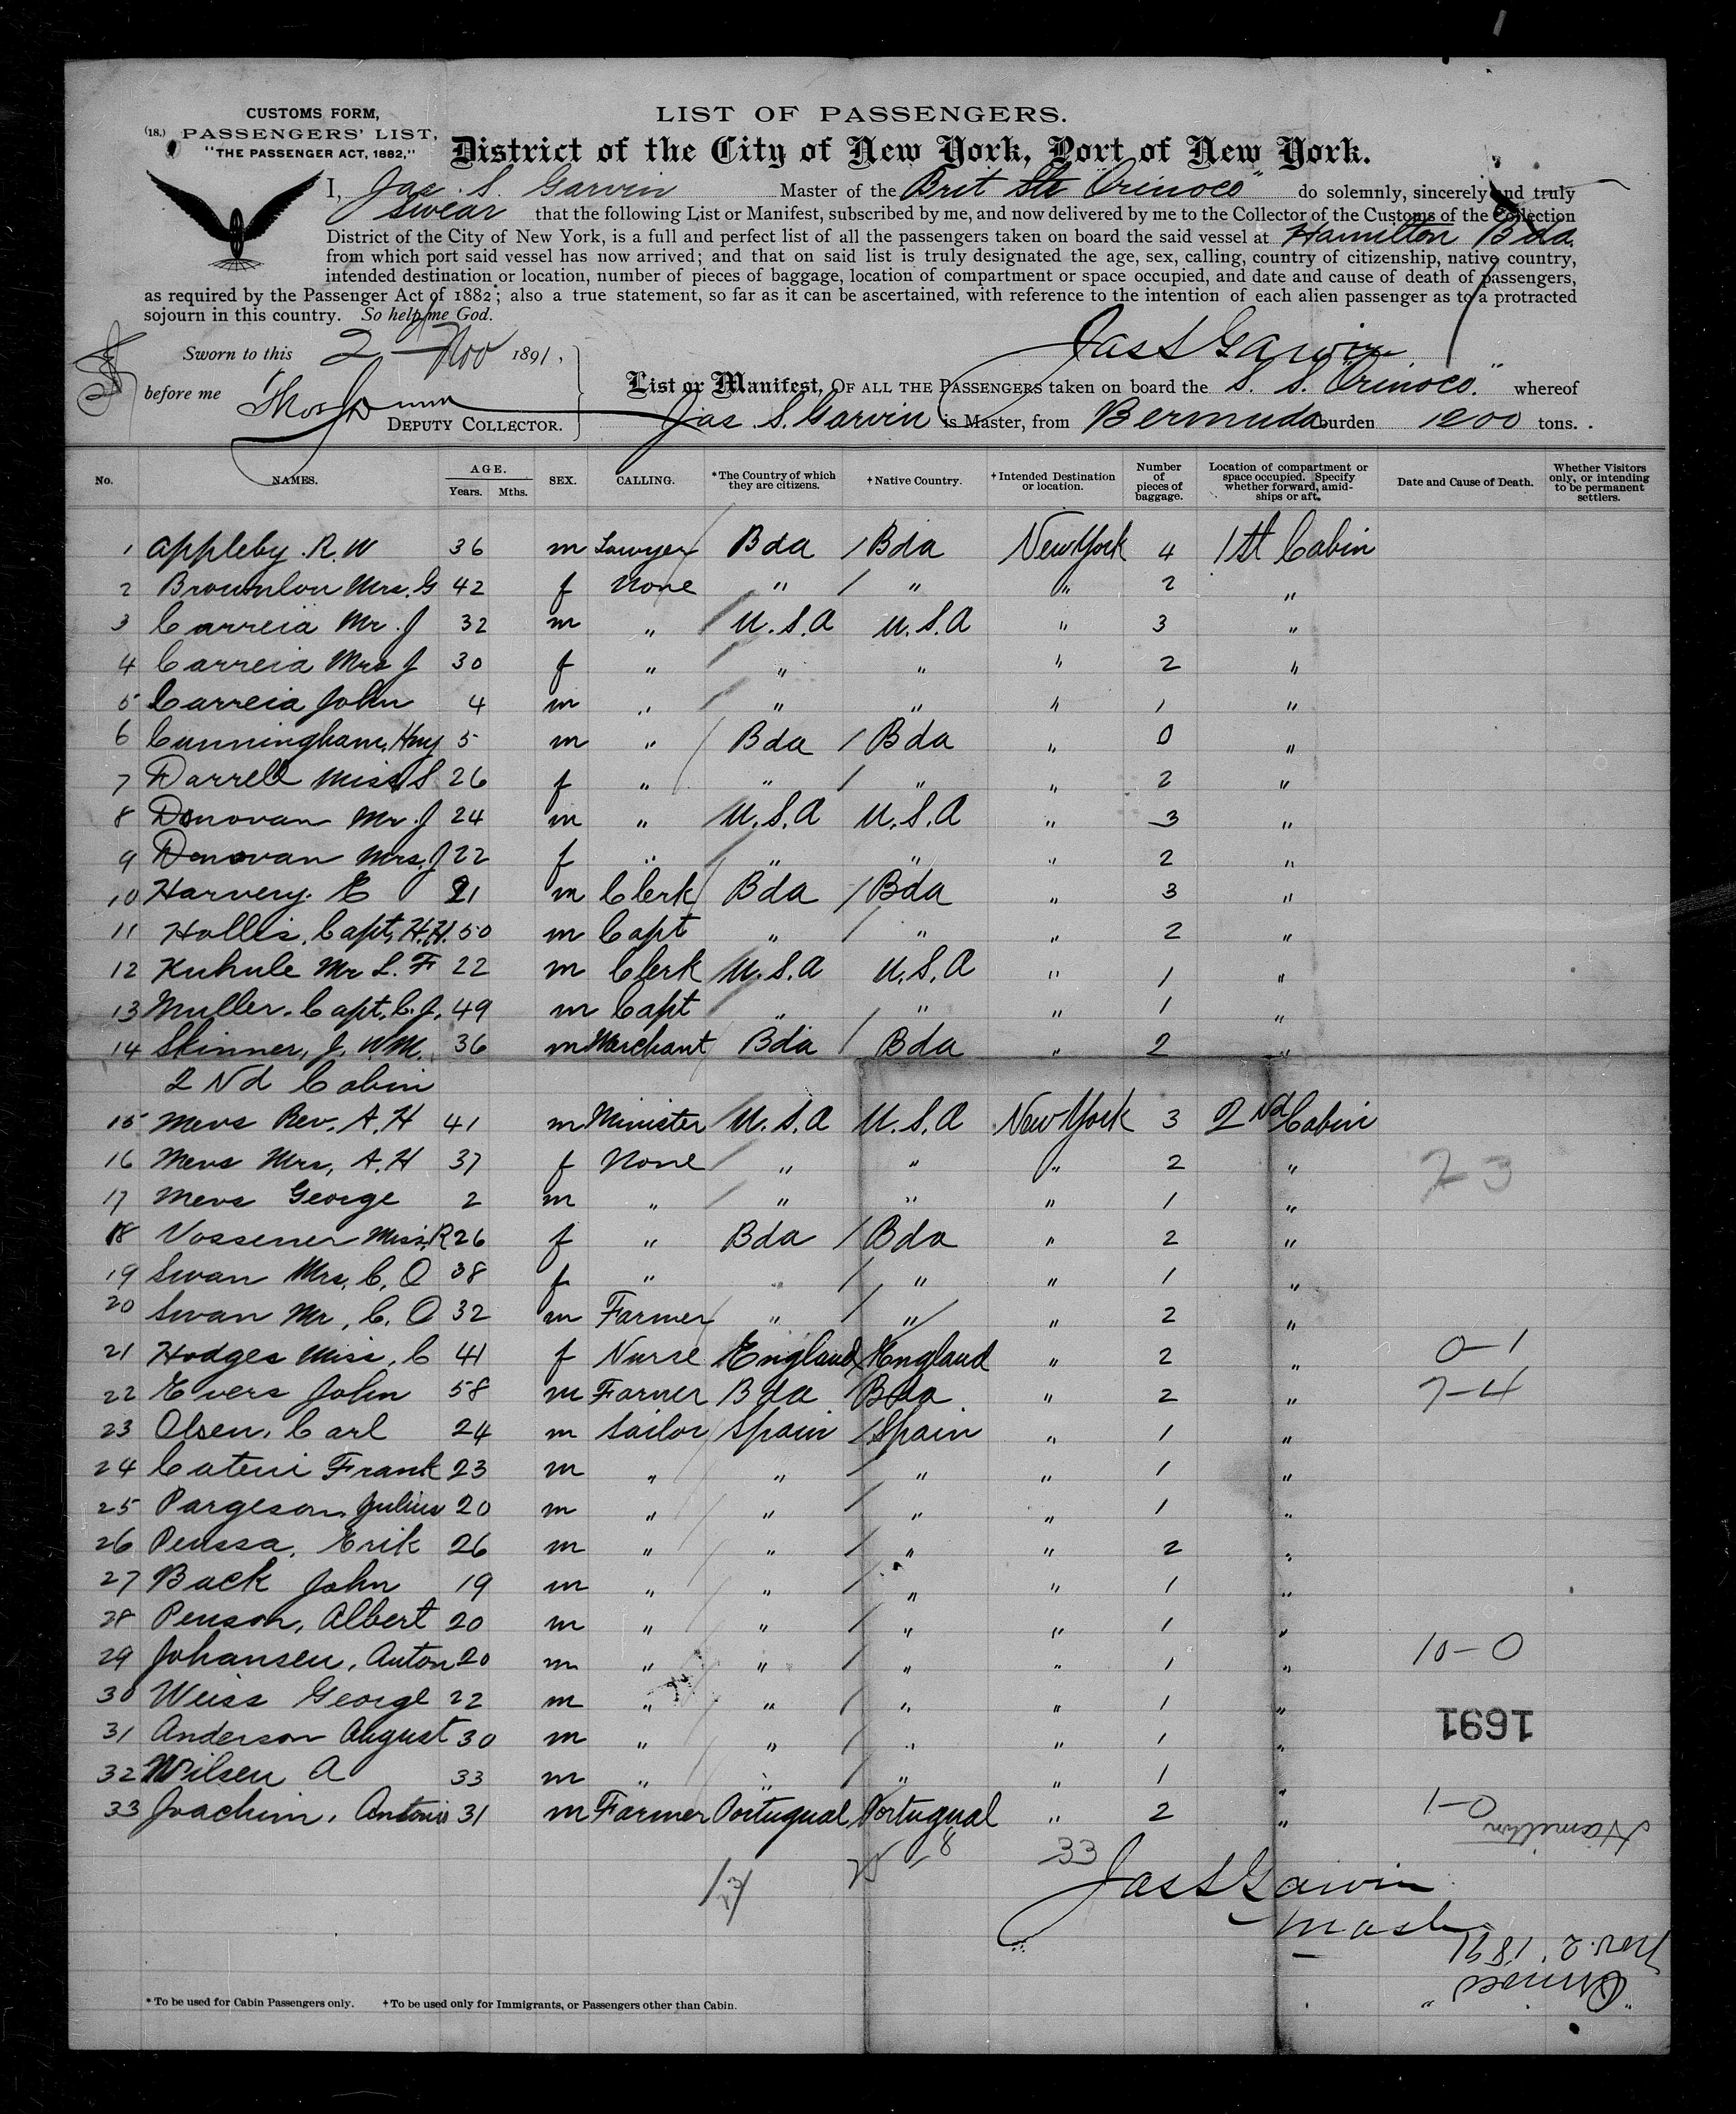 CUSTOMS FORM,
(18.) PASSENGERS' LIST,
"THE PASSENGER ACT, 1882,"
LIST OF PASSENGERS.
District of the City of New York, Port of New York.
I, Jas. S. Garvin Master of the Brit Str "Orinoco" do solemnly, sincerely and truly
swear that the following List or Manifest, subscribed by me, and now delivered by me to the Collector of the Customs of the Collection
District of the City of New York, is a full and perfect list of all the passengers taken on board the said vessel at Hamilton Bda.
from which port said vessel has now arrived; and that on said list is truly designated the age, sex, calling, country of citizenship, native country,
intended destination or location, number of pieces of baggage, location of compartment or space occupied, and date and cause of death of passengers,
as required by the Passenger Act of 1882; also a true statement, so far as it can be ascertained, with reference to the intention of each alien passenger as to a protracted
sojourn in this country. So help me God.
Sworn to this 2 Nov 1891,
Jas S Garvin
before me Thos
DEPUTY COLLECTOR.
List or Manifest, OF ALL THE PASSENGERS taken on board the S. S. "Orinoco." whereof
Jas S. Garvin is Master, from Bermuda burden 1200 tons.
No. NAMES. AGE. Years. Mths. SEX. CALLING. *The Country of which they are citizens. †Native Country. †Intended Destination or location. Number of pieces of baggage. Location of compartment or space occupied. Specify whether forward, amidships or aft. Date and Cause of Death. Whether Visitors only, or intending to be permanent settlers.
1 Appleby. R. W 36 m Lawyer Bda / Bda New York 4 1st Cabin
2 Brownlow Mrs. G 42 f None " / " " 2 "
3 Carreia Mr. J 32 m " U.S.A U.S.A " 3 "
4 Carreia Mrs J 30 f " " " " 2 "
5 Carreia John 4 m " " " " 1 "
6 Cunningham, Hny 5 m " Bda / Bda " 0 "
7 Darrell Miss S 26 f " " / " " 2 "
8 Donovan Mr. J 24 m " U.S.A U.S.A " 3 "
9 Donovan Mrs. J 22 f " " " " 2 "
10 Harvery. E 21 m Clerk Bda / Bda " 3 "
11 Hollis, Capt, H.H. 50 m Capt " / " " 2 "
12 Kuhule Mr L. F 22 m Clerk U.S.A U.S.A " 1 "
13 Muller. Capt. C.J. 49 m Capt " " " 1 "
14 Skinner, J. WM. 36 m Merchant Bda / Bda " 2 "
2 Nd Cabin
15 Mevs Rev. A. H 41 m Minister U.S.A U.S.A New York 3 2nd Cabin
16 Mevs Mrs, A. H 37 f None " " " 2 "
23
17 Mevs George 2 m " " " " 1 "
18 Vossener Miss, R 26 f " Bda / Bda " 2 "
19 Swan Mrs, C. O 38 f " " / " " 1 "
20 Swan Mr, C. O 32 m Farmer " / " " 2 "
21 Hodges Miss, C 41 f Nurse England England " 2 " 0-1
22 Evers John 58 m Farmer Bda Bda " 2 " 7-4
23 Olsen, Carl 24 m Sailor Spain / Spain " 1 "
24 Frank 23 m " " / " " 1 "
25 Pargeson, Julius 20 m " " / " " 1 "
26 Penssa, Erik 26 m " " / " " 2 "
27 Back John 19 m " " / " " 1 "
28 Penson, Albert 20 m " " / " " 1 "
29 Johansen, Anton 20 m " " / " " 1 " 10-0
30 Weiss George 22 m " " / " " 1 "
31 Anderson August 30 m " " / " " 1 "
1691
32 Wilsen A 33 m " " / " " 1 "
33 Joachim, Antonio 31 m Farmer Portugual Portugual " 2 " 1-0
Hamilton
33
Jas S Garvin
Master
Nov. 2. 1891
"Orinoco"
*To be used for Cabin Passengers only. †To be used only for Immigrants, or Passengers other than Cabin.